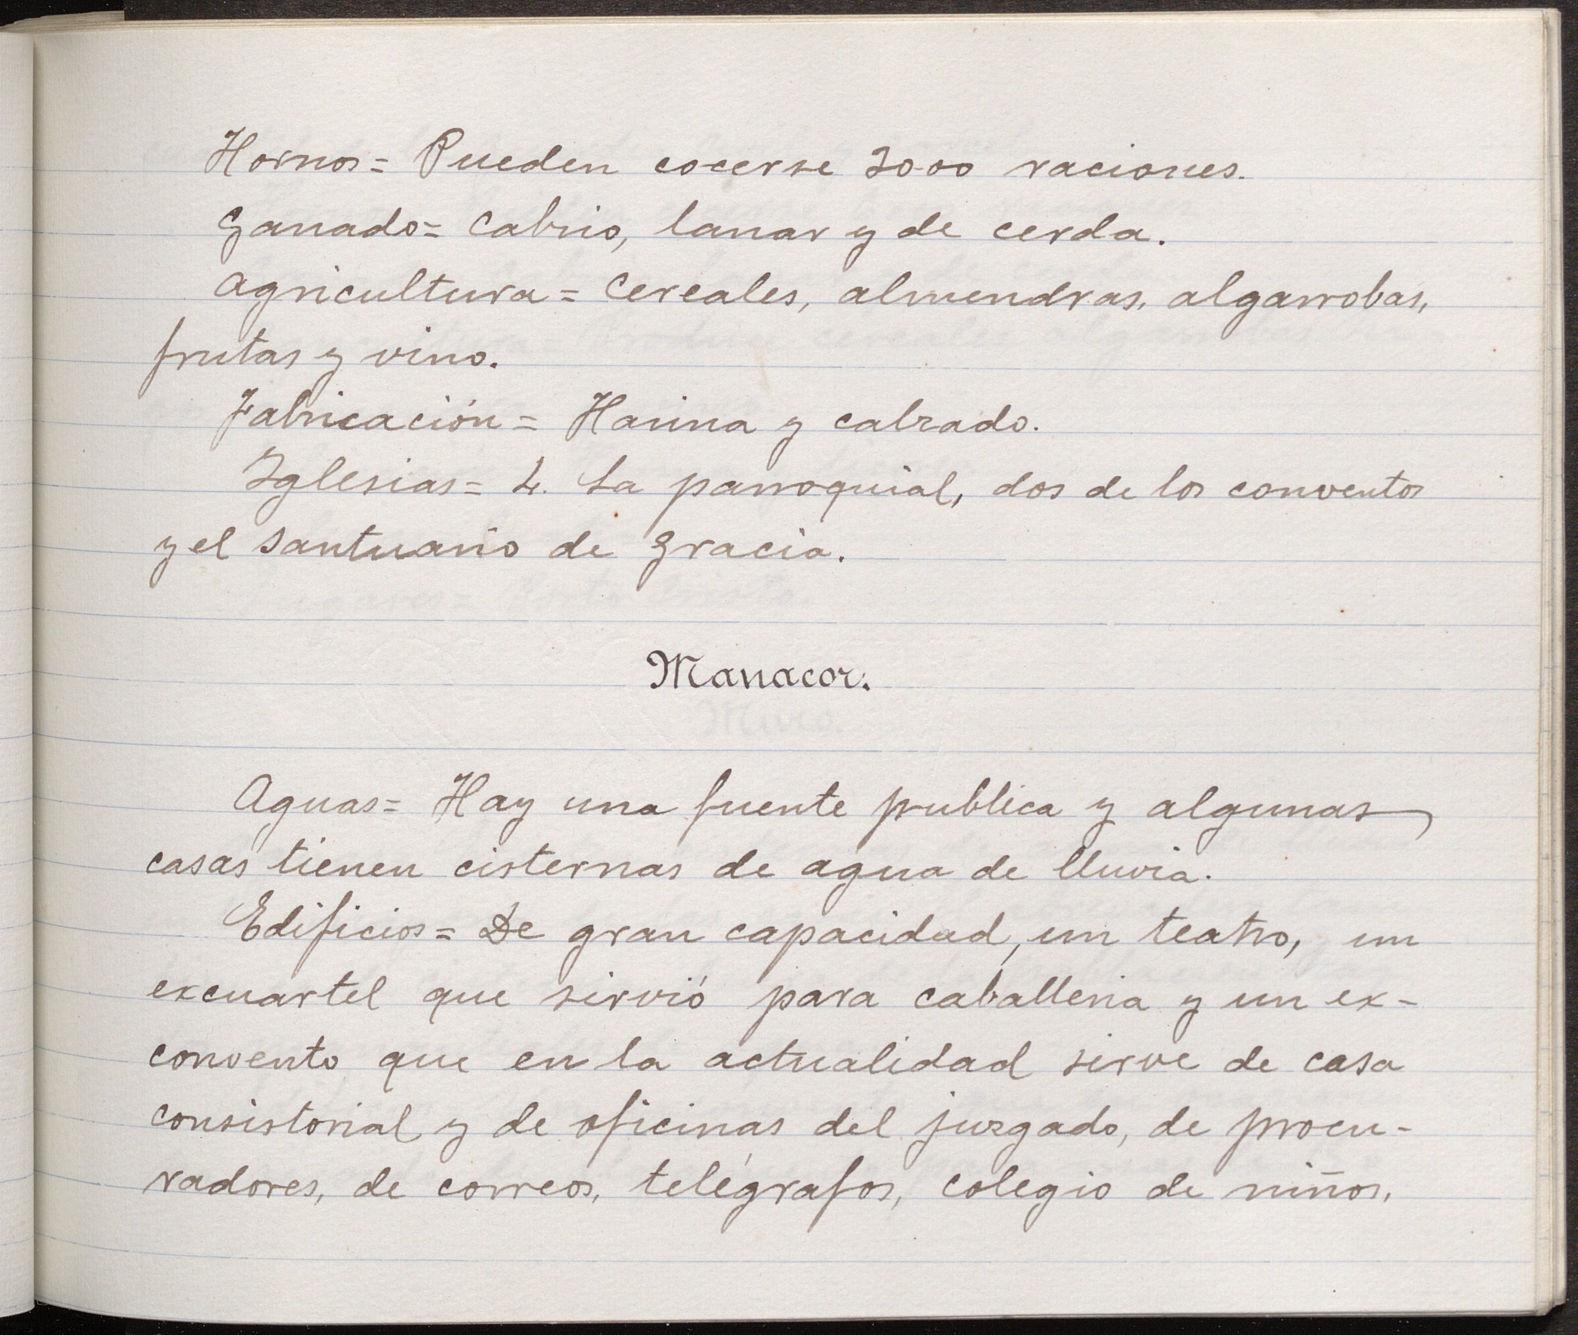 Hornos = Pueden cocerse 3000 raciones.
Ganado = Cabrio, lanar y de cerda.
Agricultura = Cereales, almendras, algarrobas,
frutas y vino.
Fabricación = Harina y calzado.
Iglesias = 4. La parroquial, dos de los conventos
y el Santuario de Gracia.
Manacor.
Aguas = Hay una fuente publica y algunas
casas tienen cisternas de agua de lluvia.
Edificios = De gran capacidad, un teatro, un
excuartel que sirvió para caballeria y un ex-
convento que en la actualidad sirve de casa
consistorial y de oficinas del juzgado, de procu-
radores, de correos, telégrafos, colegio de niños,